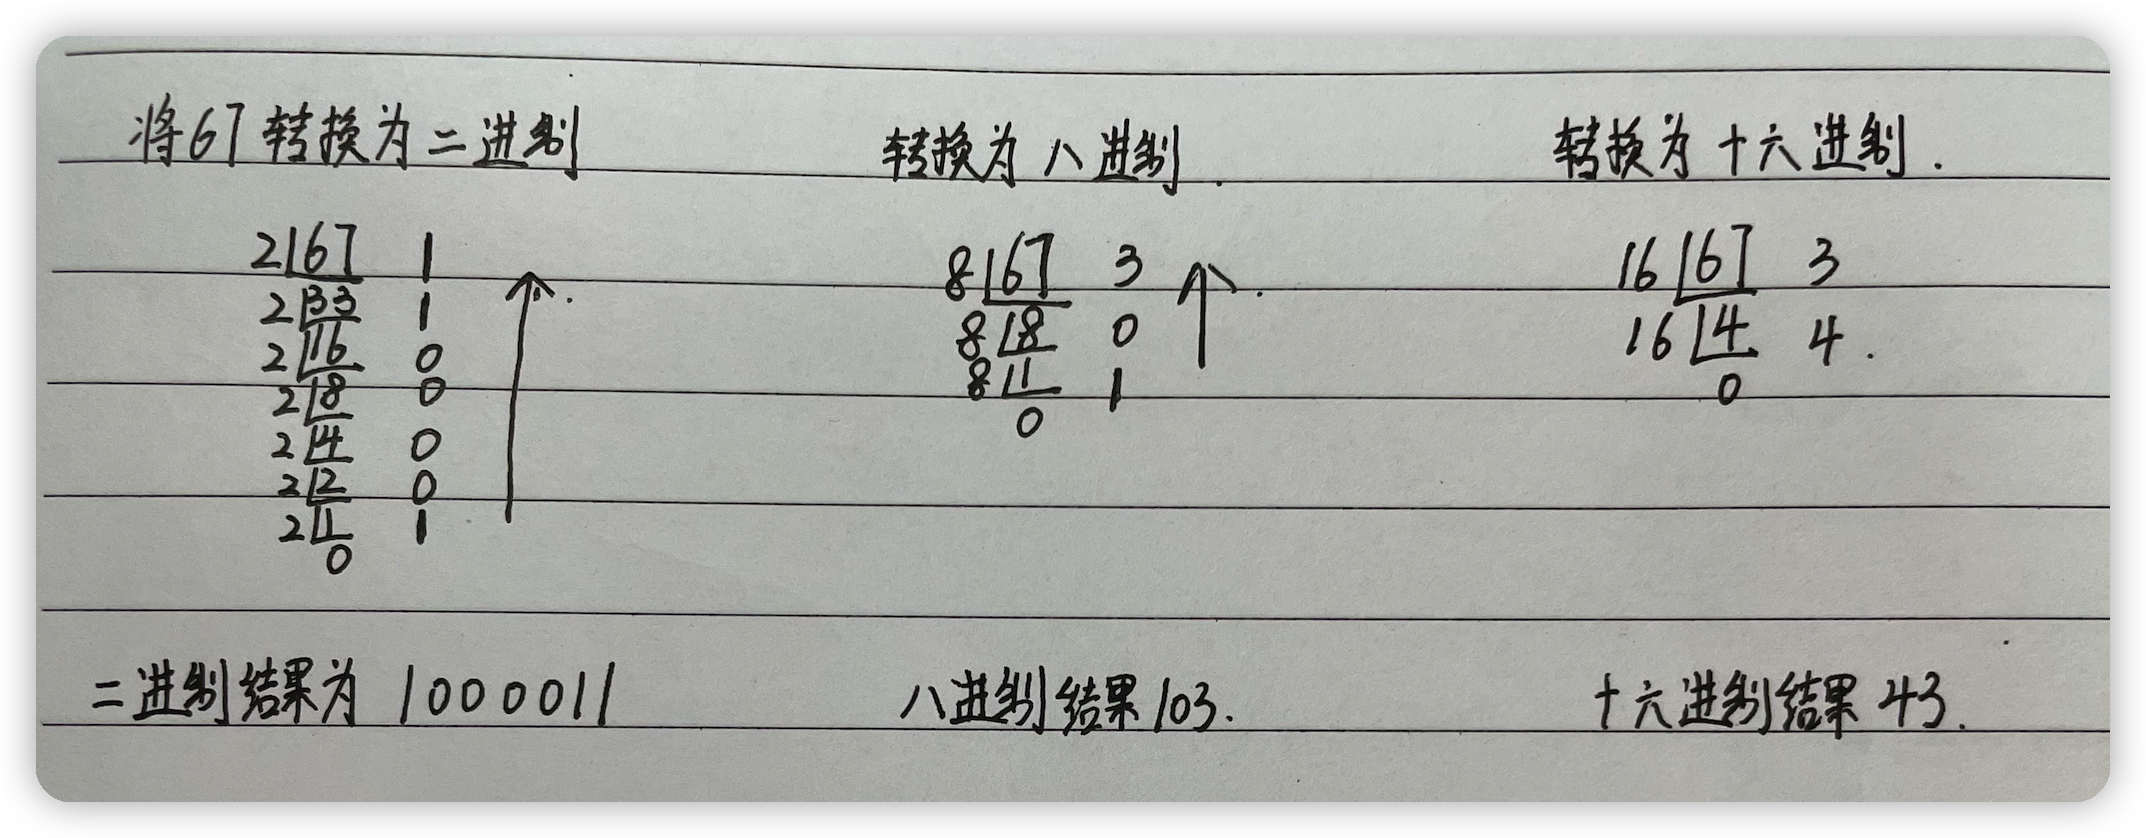 将67转换为二进制
2 67 1
2 33 1
2 16 0
2 8 0
2 4 0
2 2 0
2 1 1
0
二进制结果为 1000011
转换为八进制.
8 67 3
8 8 0
8 1 1
0
八进制结果103.
转换为十六进制.
16 67 3
16 4 4.
0
十六进制结果43.